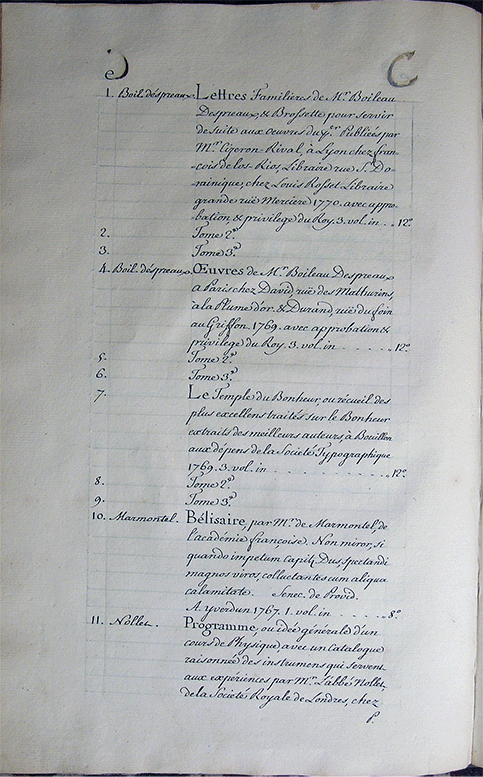 e C
1. Boil. déspreaux. Lettres Familières de Mr. Boileau
Despreaux, & Brossette pour servir
de suite aux oeuvres du pr.er Publiées par
Mr. Cizeron-Rival, à Lyon chez fran-
-çois de los-Rios, Libraire rue S. Do-
-minique, chez Louis Rosset Libraire
grande ruë Merciere 1770. avec appro-
bation, & privilege du Roy. 3. vol. in .. 12º
2. Tome 2.d
3. Tome 3.e
4. Boil. déspreaux. Œuvres de Mr. Boileau Despreaux
a Paris chez David, ruë des Mathurins,
à la Plume d'or. & Durand, ruë du foin
au Griffon. 1769. avec approbation &
privilege du Roy. 3. vol. in . . . . . . 12º
5. Tome 2.d
6. Tome 3.e
7. Le Temple du Bonheur, ou récueil des
plus excellens traités sur le Bonheur
extraits des meilleurs auteurs, à Bouillon
aux dépens de la Societé Typographique
1769. 3. vol. in . . . . . . . . . 12º
8. Tome 2.d
9. Tome 3.e
10. Marmontel. Bélisaire, par Mr. de Marmontel, de
l'académie françoise. Non miror, si
quando impetum capit, Dus spectandi
magnos viros, colluctantes cum aliqua
calamitate. Senec. de Provd.
A. yverdun 1767. 1. vol. in . . . . . 8º
11. Nollet. Programme, ou idée générale d'un
cours de Physique avec un Catalogue
raisonnée des instrumens qui servent
aux expériences par Mr. L'abbé Nollet,
de la Societé Royale de Londres, chez
P.